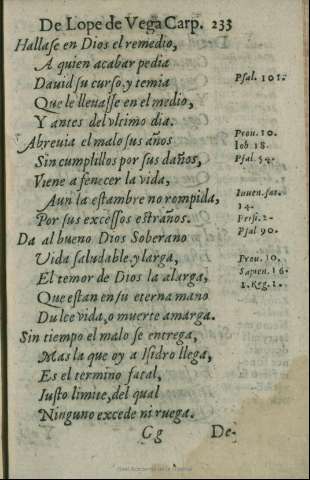 De Lope de Vega Carp. 233
Hallaſe en Dios el remedio,
A quien acabar pedia
Dauid ſu curſo, y temia
Pſal. 101.
Que le lleuaſſe en el medio,
Y antes del vltimo dia.
Abreuia el malo ſus años
Prou. 10.
Iob 18.
Sin cumplillos por ſus daños,
Pſal. 54.
Viene a fenecer la vida,
Aun la eſtambre no rompida,
Iuuen. ſat.
14.
Por ſus exceſſos eſtraños.
Perſi. 2.
Da al bueno Dios Soberano
Pſal 90.
Vida ſaludable, y larga,
Prou. 10.
El temor de Dios la alarga,
Sapien. 16.
Que eſtan en ſu eterna mano
1. Reg. 1.
Dulce vida, o muerte amarga.
Sin tiempo el malo ſe entrega,
Mas la que oy a Iſidro llega,
Es el termino fatal,
Iuſto limite, del qual
Ninguno excede ni ruega.
Gg De-